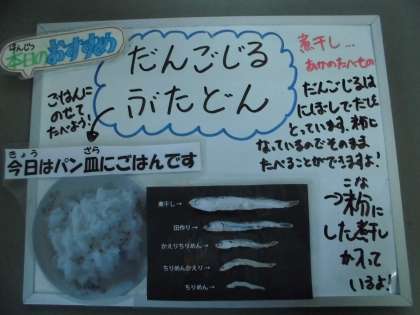 ほんじつ
本日のおすすめ
だんごじる
ぶたどん
ごはんに
のせて
たべよう!
きょう さら
今日はパン皿にごはんです
煮干し…
だんごじるは
にぼしでだしを
とっています。粉に
なっているのでそのまま
たべることができますよ!
こな
粉に
した煮干し
が入って
いるよ!
煮干し→
田作り→
かえりちりめん→
ちりめんかえり→
ちりめん→